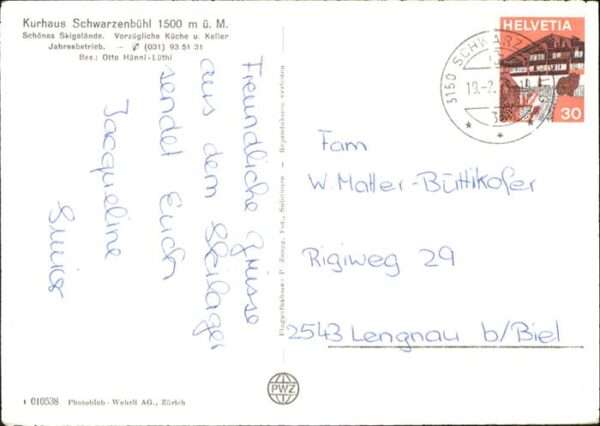 Kurhaus Schwarzenbühl 1500 m ü. M.
Schönes Skigelände. Vorzügliche Küche u. Keller
Jahresbetrieb. – ✆ (031) 93 51 31
Bes.: Otto Hänni-Lüthi
Freundliche Grüsse
aus dem Skilager
sendet Euch
Jacqueline
HELVETIA
30
3150 SCHWARZ
19.-2.
Fam
W. Matter-Büttikofer
Rigiweg 29
2543 Lengnau b/Biel
PWZ
1 010538 Photoglob-Wehrli AG., Zürich